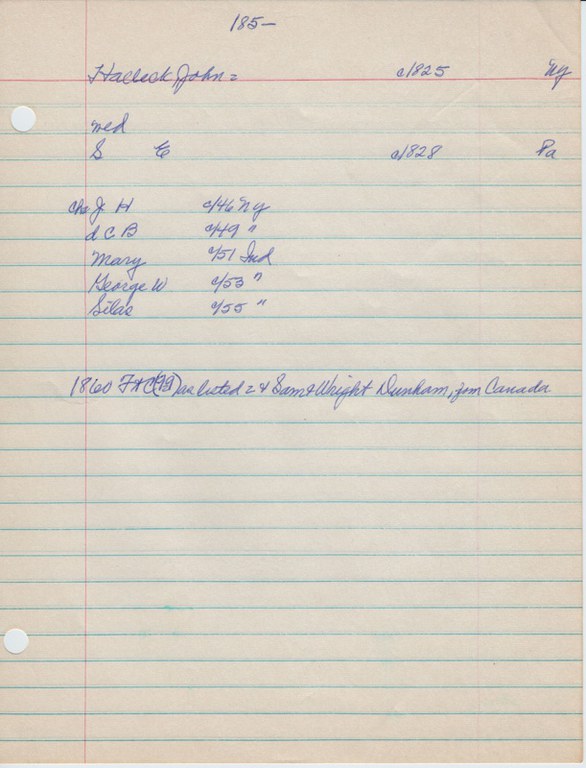 185-
Halleck, John = c/1825 NY
md
S E c/1828 Pa
chn J H c/46 NY
d C B c/49 "
Mary c/51 Ind
George W c/53 "
Silas c/55 "
1860 (99) as listed = & Sam & Wright Dunham, from Canada